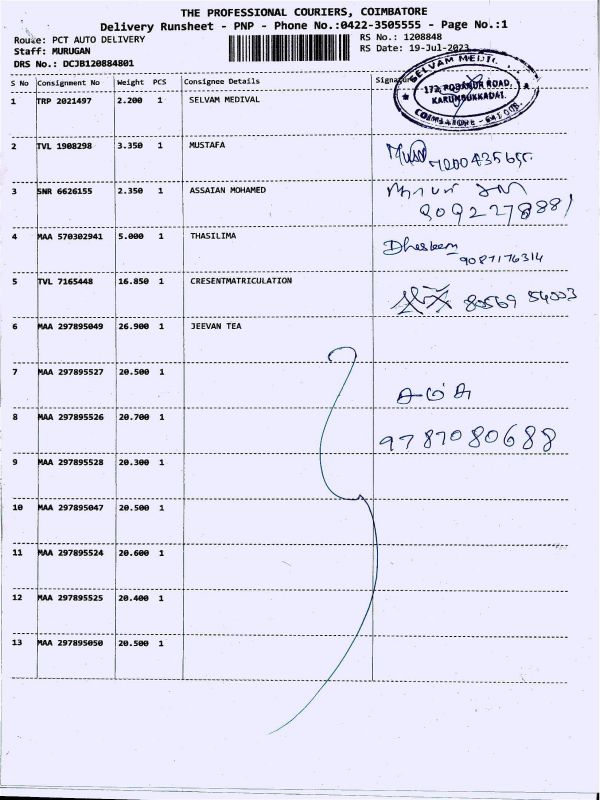 THE PROFESSIONAL COURIERS, COIMBATORE
Delivery Runsheet - PNP - Phone No.:0422-3505555 - Page No.:1
Route: PCT AUTO DELIVERY
RS No.: 1208848
Staff: MURUGAN
RS Date: 19-Jul-2023
DRS No.: DCJB120884801
S No Consignment No Weight PCS Consignee Details Signature
SELVAM MEDIC
172, PODANUR ROAD,
KARUMBUKKADAI.
COIMBATORE
1 TRP 2021497 2.200 1 SELVAM MEDIVAL
2 TVL 1908298 3.350 1 MUSTAFA
3 SNR 6626155 2.350 1 ASSAIAN MOHAMED
4 MAA 570302941 5.000 1 THASILIMA
9087176314
5 TVL 7165448 16.850 1 CRESENTMATRICULATION
80569 54003
6 MAA 297895049 26.900 1 JEEVAN TEA
7 MAA 297895527 20.500 1
8 MAA 297895526 20.700 1
9787080688
9 MAA 297895528 20.300 1
10 MAA 297895047 20.500 1
11 MAA 297895524 20.600 1
12 MAA 297895525 20.400 1
13 MAA 297895050 20.500 1